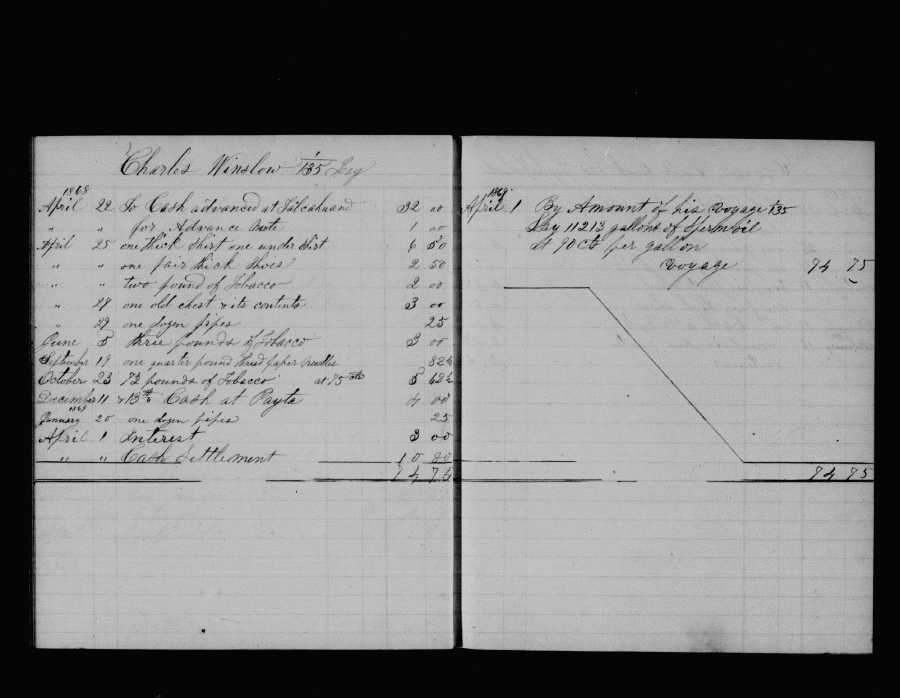 Charles Winslow 1/135 Lay
1868
April 22 To Cash advanced at Talcahuand 32 00
" " for Advance Note 1 00
April 25 one thick Shirt one under Shirt 6 50
" " one pair thick Shoes 2 50
" " two pound of Tobacco 2 00
" 27 one old chest & its contents 3 00
" 29 one dozen pipes 25
June 5 three pounds of Tobacco 3 00
September 19 one quarter pound thread paper Needles 82½
October 23 7½ pounds of Tobacco at 75 cts 5 62½
December 11 & 13th Cash at Payta 4 00
1869
January 20 one dozen pipes 25
April 1 Interest 3 00
" " Cash Settlement 10 80
74 75
1869
April 1 By Amount of his voyage 1/135
Lay 11213 gallons of Sperm oil
at 90 cts per gallon
voyage 74 75
74 75